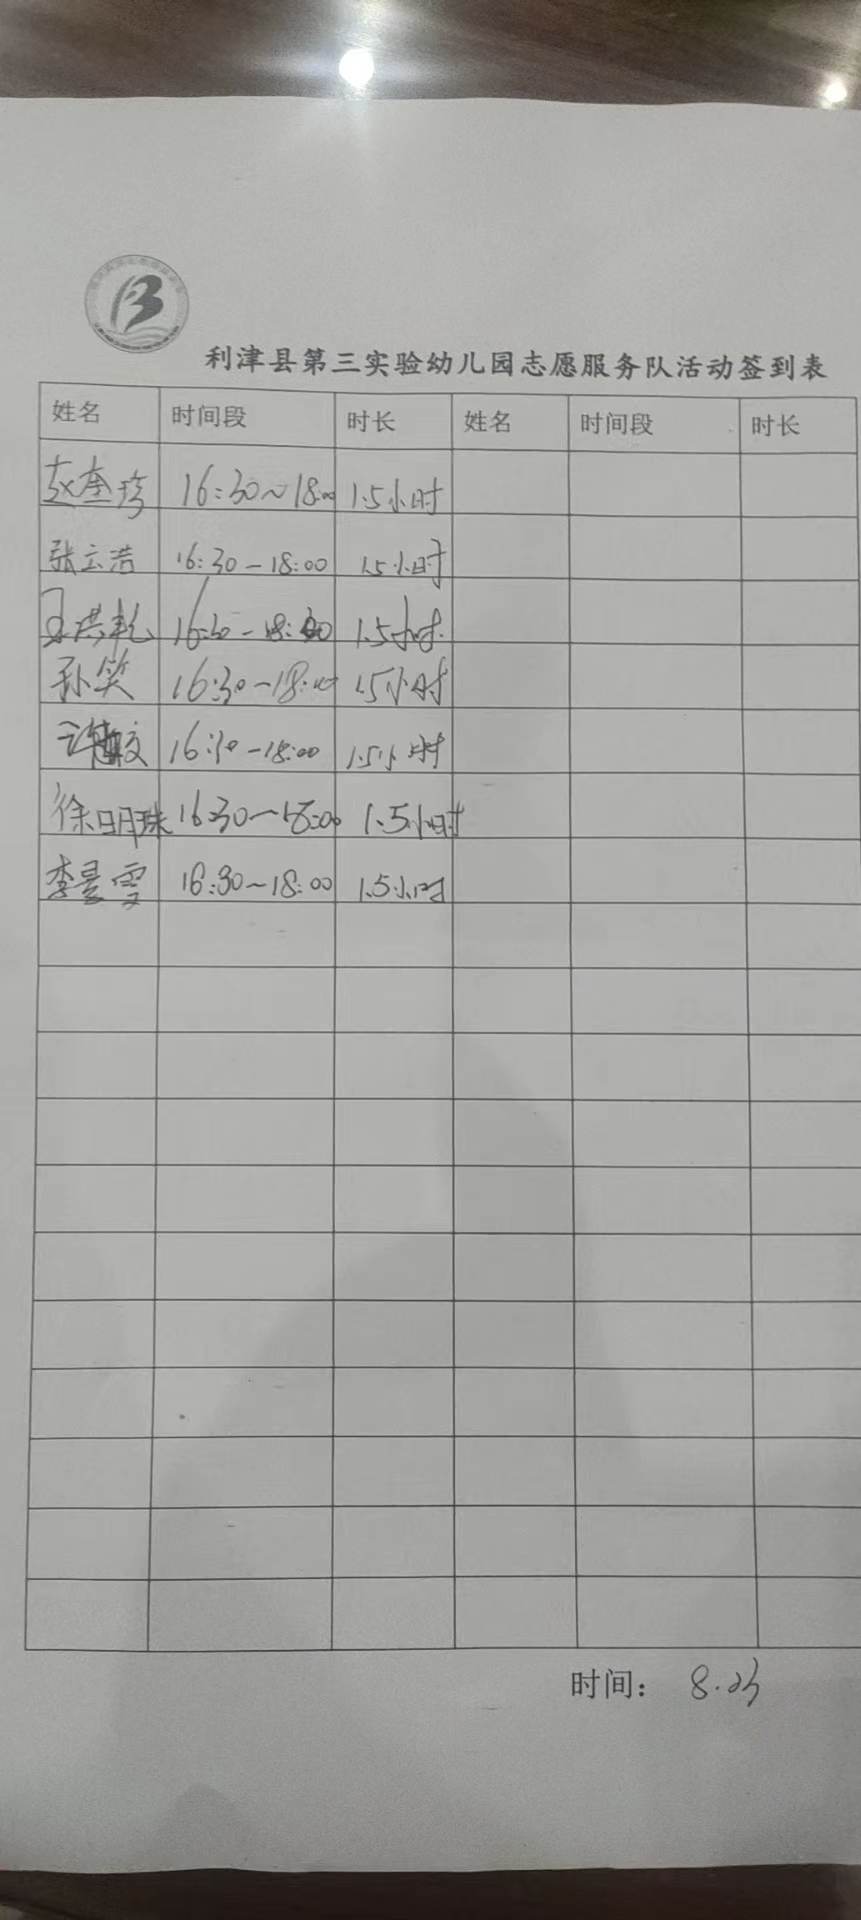 利津县第三实验幼儿园志愿服务队活动签到表
姓名 时间段 时长 姓名 时间段 时长
赵奎珍 16:30~18:00 1.5小时
张云浩 16:30-18:00 1.5小时
王洪乾 16:30-18:00 1.5小时
孙笑 16:30-18:00 1.5小时
16:30-18:00 1.5小时
徐明珠 16:30-18:00 1.5小时
李昱雪 16:30~18:00 1.5小时
时间: 8.23